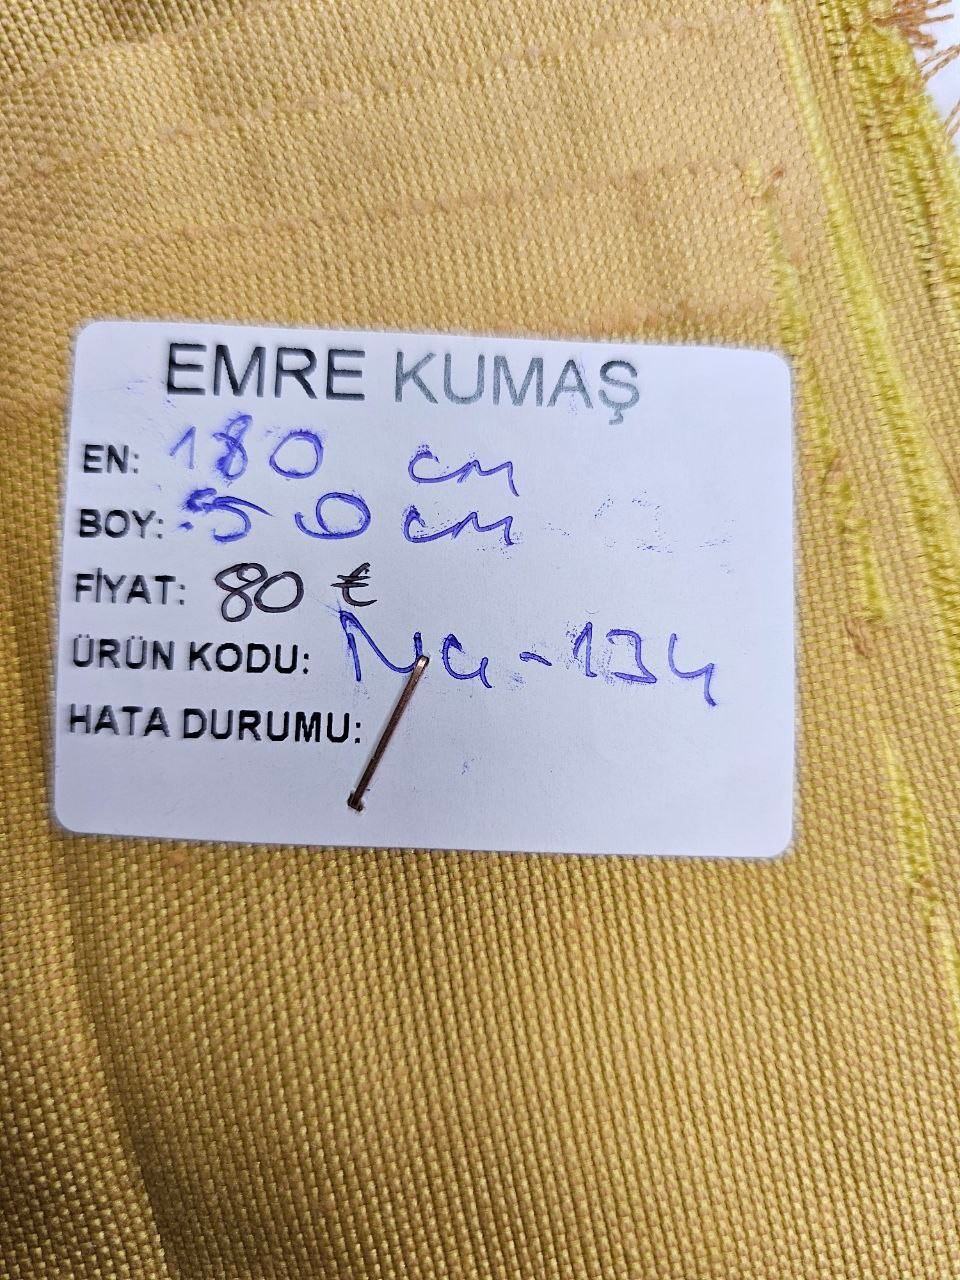 EMRE KUMAŞ
EN: 180 cm
BOY: 50 cm
FİYAT: 80 €
ÜRÜN KODU: NG-134
HATA DURUMU: